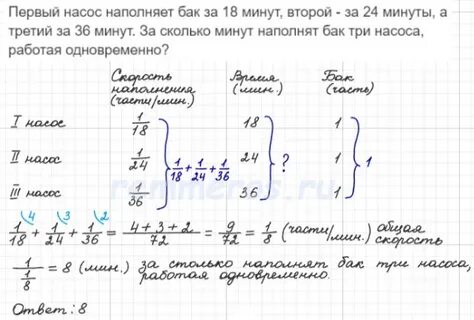 Первый насос наполняет бак за 18 минут, второй - за 24 минуты, а
третий за 36 минут. За сколько минут наполнят бак три насоса,
работая одновременно?
Скорость наполнения (части/мин.) Время (мин.) Бак (часть)
I насос 1/18 18 1
II насос 1/24 } 1/18 + 1/24 + 1/36 24 } ? 1 } 1
III насос 1/36 36 1
1/18 \4 + 1/24 \3 + 1/36 \2 = 4 + 3 + 2/72 = 9/72 = 1/8 (части/мин.) общая скорость
1/(1/8) = 8 (мин.) за столько наполнят бак три насоса,
работая одновременно.
Ответ: 8